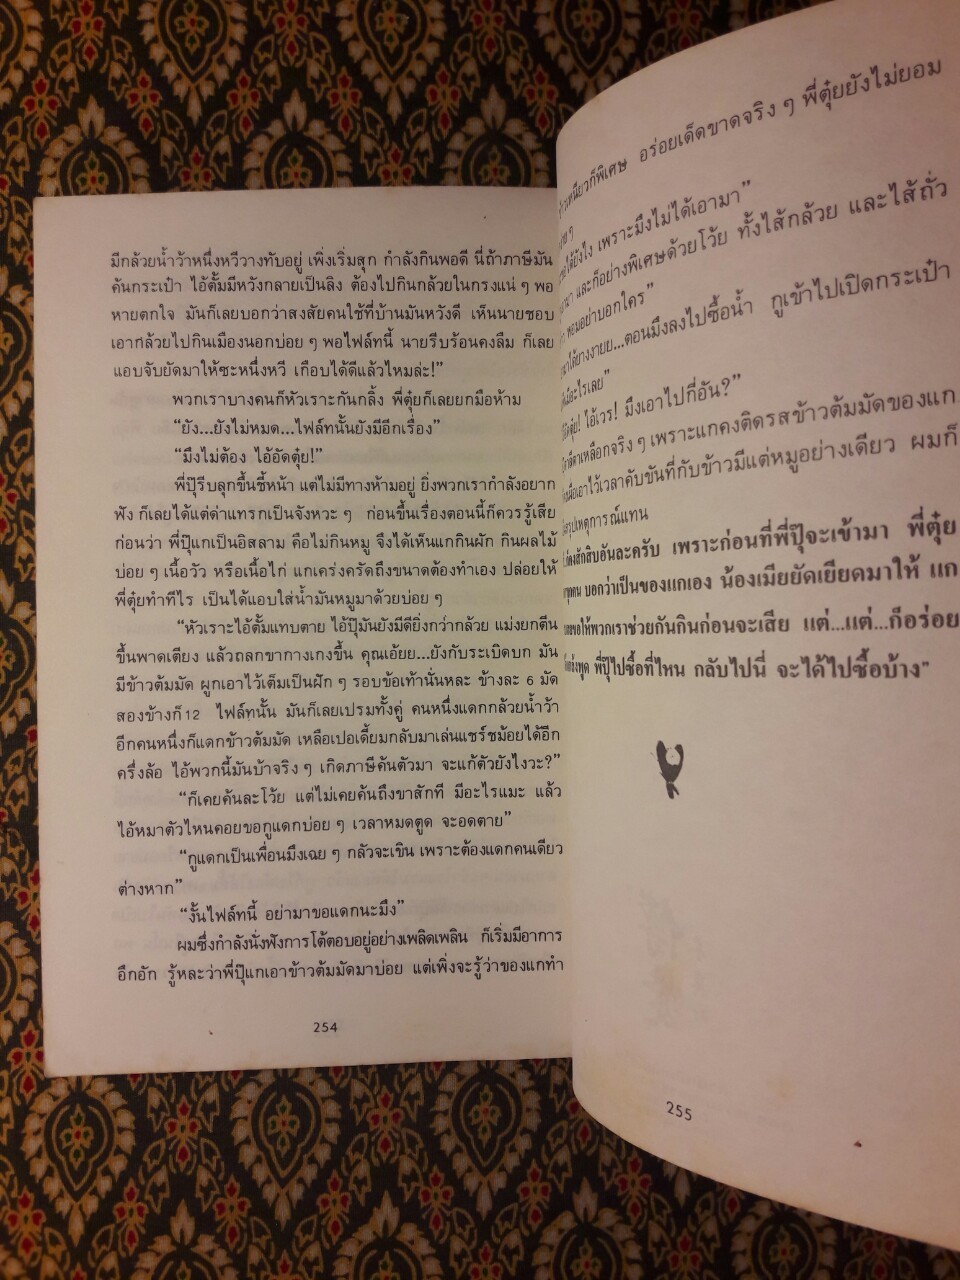 มีกล้วยน้ำว้าหนึ่งหวีวางทับอยู่ เพิ่งเริ่มสุก กำลังกินพอดี นี่ถ้าภาษีมัน
ค้นกระเป๋า ไอ้ตั้มมีหวังกลายเป็นลิง ต้องไปกินกล้วยในกรงแน่ ๆ พอ
หายตกใจ มันก็เลยบอกว่าสงสัยคนใช้ที่บ้านมันหวังดี เห็นนายชอบ
เอากล้วยไปกินเมืองนอกบ่อย ๆ พอไฟล์ทนี้ นายรีบร้อนคงลืม ก็เลย
แอบจับยัดมาให้ซะหนึ่งหวี เกือบได้ดีแล้วไหมล่ะ!”
พวกเราบางคนก็หัวเราะกันกลิ้ง พี่ตุ๋ยก็เลยยกมือห้าม
“ยัง...ยังไม่หมด...ไฟล์ทนั้นยังมีอีกเรื่อง”
“มึงไม่ต้อง ไอ้อัดตุ๋ย!”
พี่ปุ๊รีบลุกขึ้นชี้หน้า แต่ไม่มีทางห้ามอยู่ ยิ่งพวกเรากำลังอยาก
ฟัง ก็เลยได้แต่ด่าแทรกเป็นจังหวะ ๆ ก่อนขึ้นเรื่องตอนนี้ก็ควรรู้เสีย
ก่อนว่า พี่ปุ๊แกเป็นอิสลาม คือไม่กินหมู จึงได้เห็นแกกินผัก กินผลไม้
บ่อย ๆ เนื้อวัว หรือเนื้อไก่ แกเคร่งครัดถึงขนาดต้องทำเอง ปล่อยให้
พี่ตุ๋ยทำทีไร เป็นได้แอบใส่น้ำมันหมูมาด้วยบ่อย ๆ
“หัวเราะไอ้ตั้มแทบตาย ไอ้ปุ๊มันยังมีดียิ่งกว่ากล้วย แม่งยกตีน
ขึ้นพาดเตียง แล้วถลกขากางเกงขึ้น คุณเอ้ยย...ยังกับระเบิดบก มัน
มีข้าวต้มมัด ผูกเอาไว้เต็มเป็นฝัก ๆ รอบข้อเท้านั่นหละ ข้างละ 6 มัด
สองข้างก็ 12 ไฟล์ทนั้น มันก็เลยเปรมทั้งคู่ คนหนึ่งแดกกล้วยน้ำว้า
อีกคนหนึ่งก็แดกข้าวต้มมัด เหลือเปอเดี้ยมกลับมาเล่นแชร์ชม้อยได้อีก
ครึ่งล้อ ไอ้พวกนี้มันบ้าจริง ๆ เกิดภาษีค้นตัวมา จะแก้ตัวยังไงวะ?”
“ก็เคยค้นละโว้ย แต่ไม่เคยค้นถึงขาสักที มีอะไรแมะ แล้ว
ไอ้หมาตัวไหนคอยขอกูแดกบ่อย ๆ เวลาหมดตูด จะอดตาย”
“กูแดกเป็นเพื่อนมึงเฉย ๆ กลัวจะเขิน เพราะต้องแดกคนเดียว
ต่างหาก”
“งั้นไฟล์ทนี้ อย่ามาขอแดกนะมึง”
ผมซึ่งกำลังนั่งฟังการโต้ตอบอยู่อย่างเพลิดเพลิน ก็เริ่มมีอาการ
อึกอัก รู้หละว่าพี่ปุ๊แกเอาข้าวต้มมัดมาบ่อย แต่เพิ่งจะรู้ว่าของแกทำ
254
ก็พิเศษ อร่อยเด็ดขาดจริง ๆ พี่ตุ๋ยยังไม่ยอม
ได้ยังไง เพราะมึงไม่ได้เอามา”
และก็อย่างพิเศษด้วยโว้ย ทั้งไส้กล้วย และไส้ถั่ว
อย่าบอกใคร”
ตอนมึงลงไปซื้อน้ำ กูเข้าไปเปิดกระเป๋า
มีอะไรเลย”
ไอ้เวร! มึงเอาไปกี่อัน?”
จริง ๆ เพราะแกคงติดรสข้าวต้มมัดของแก
เอาไว้เวลาคับขันที่กับข้าวมีแต่หมูอย่างเดียว ผมก็
สรุปเหตุการณ์แทน
สักสิบอันละครับ เพราะก่อนที่พี่ปุ๊จะเข้ามา พี่ตุ๋ย
บอกว่าเป็นของแกเอง น้องเมียยัดเยียดมาให้ แก
ให้พวกเราช่วยกันกินก่อนจะเสีย แต่...แต่...ก็อร่อย
พูด พี่ปุ๊ไปซื้อที่ไหน กลับไปนี่ จะได้ไปซื้อบ้าง”
255